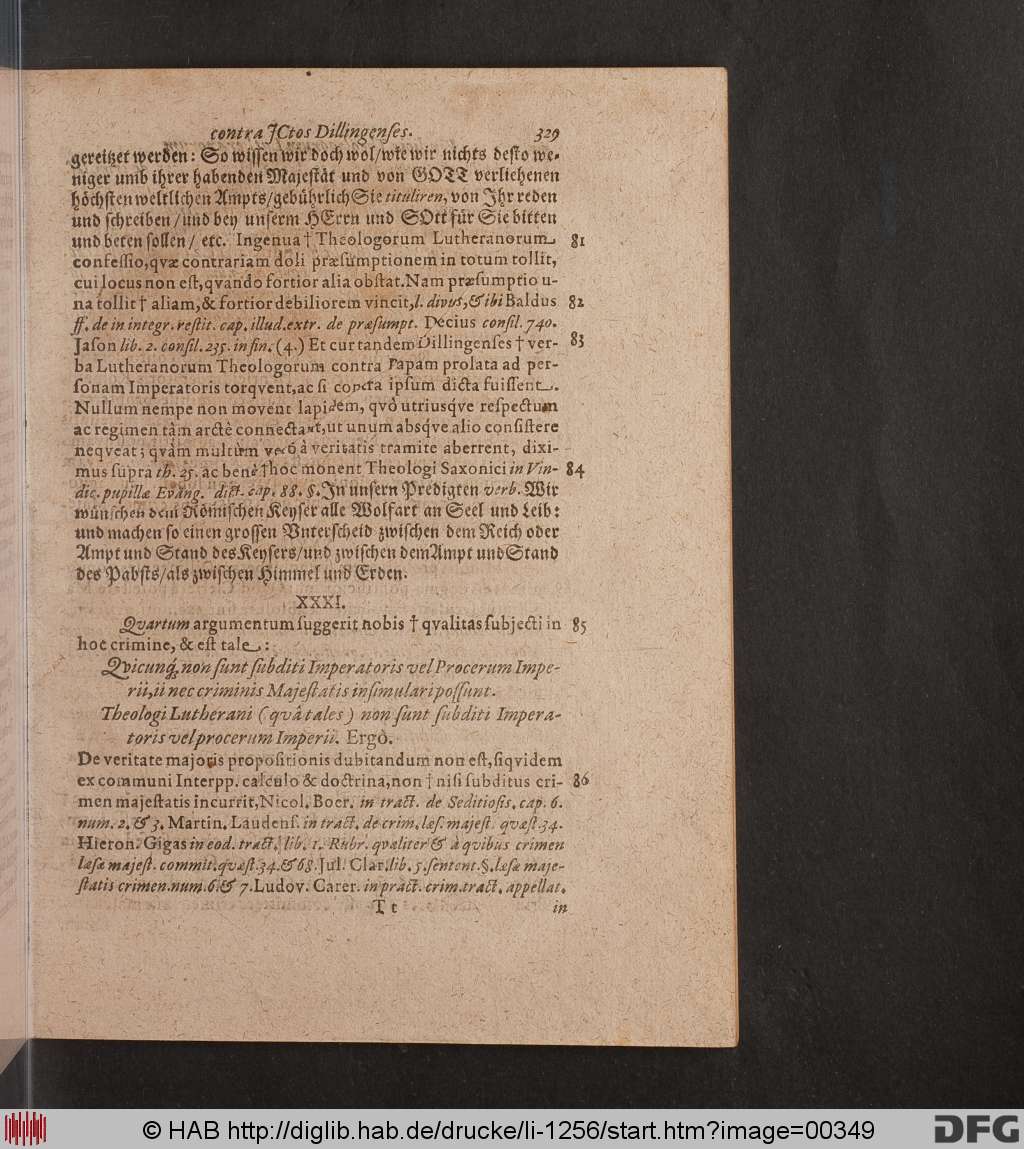 contra JCtos Dillingenses. 329
gereitzet werden: So wissen wir doch wol/wie wir nichts desto we-
niger umb ihrer habenden Majestät und von GOTT verliehenen
höchsten weltlichen Ampts/gebührlich Sie tituliren, von Ihr reden
und schreiben/und bey unserm HErrn und GOtt für Sie bitten
und beten sollen/ etc. Ingenua † Theologorum Lutheranorum 81
confessio, qvæ contrariam doli præsumptionem in totum tollit,
cui locus non est, qvando fortior alia obstat. Nam præsumptio u-
na tollit † aliam, & fortior debiliorem vincit, l. divus, & ibi Baldus 82
ff. de in integr. restit. cap. illud. extr. de præsumpt. Decius consil. 740.
Jason lib. 2. consil. 235. in fin. (4.) Et cur tandem Dillingenses † ver- 83
ba Lutheranorum Theologorum contra Papam prolata ad per-
sonam Imperatoris torqvent, ac si contra ipsum dicta fuissent.
Nullum nempe non movent lapidem, qvò utriusq́ve respectum
ac regimen tâm arctè connectant, ut unum absq́ve alio consistere
neqveat; qvàm multùm verò à veritatis tramite aberrent, dixi-
mus supra th. 25. ac benè † hoc monent Theologi Saxonici in Vin- 84
dic. pupillæ Evang. dict. cap. 88. §. In unsern Predigten verb. Wir
wünschen dem Römischen Keyser alle Wolfart an Seel und Leib:
und machen so einen grossen Unterscheid zwischen dem Reich oder
Ampt und Stand des Keysers/und zwischen dem Ampt und Stand
des Pabsts/als zwischen Himmel und Erden.
XXXI.
Qvartum argumentum suggerit nobis † qvalitas subjecti in 85
hoc crimine, & est tale:
Qvicunq́; non sunt subditi Imperatoris vel Procerum Impe-
rii, ii nec criminis Majestatis insimulari possunt.
Theologi Lutherani (qvâ tales) non sunt subditi Impera-
toris vel procerum Imperii. Ergò.
De veritate majoris propositionis dubitandum non est, siqvidem
ex communi Interpp. calculo & doctrina, non † nisi subditus cri- 86
men majestatis incurrit, Nicol. Boer. in tract. de Seditiosis. cap. 6.
num. 2. & 3. Martin. Laudens. in tract. de crim. læs. majest. qvæst. 34.
Hieron. Gigas in eod. tract. lib. 1. Rubr. qvaliter & à qvibus crimen
læsæ majest. commit. qvæst. 34. & 68. Jul. Clar. lib. 5. sentent. §. læsæ maje-
statis crimen. num. 6 & 7. Ludov. Carer. in pract. crim. tract. appellat.
T t in
© HAB http://diglib.hab.de/drucke/li-1256/start.htm?image=00349
DFG